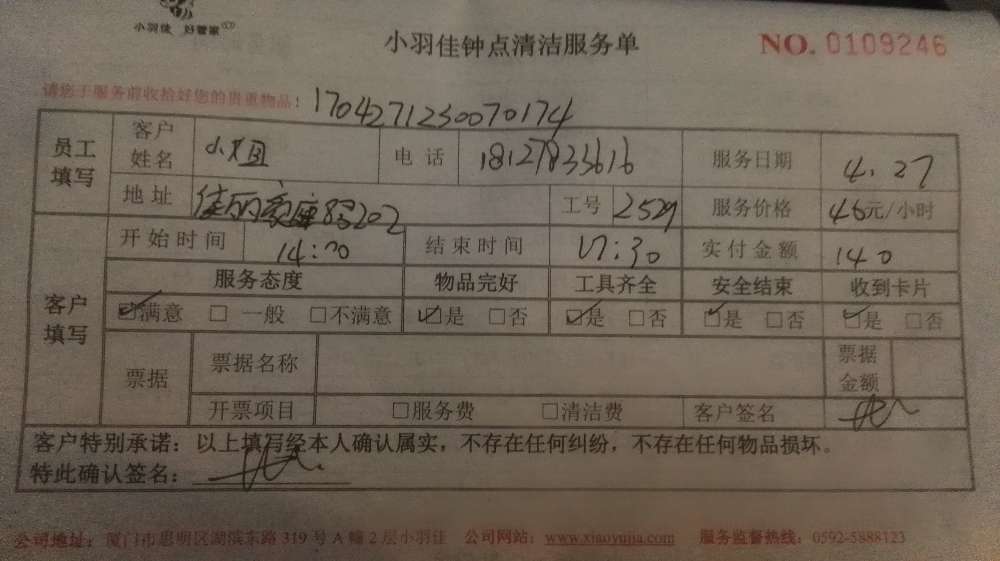 小羽佳 好管家
小羽佳钟点清洁服务单
NO. 0109246
请您于服务前收拾好您的贵重物品！
1704271230070174
员工填写 客户姓名 小姐 电话 18127833616 服务日期 4.27
地址 佳丽豪座 202 工号 2529 服务价格 46元/小时
客户填写 开始时间 14:00 结束时间 17:30 实付金额 140
服务态度 物品完好 工具齐全 安全结束 收到卡片
☑满意 □一般 □不满意 ☑是 □否 ☑是 □否 ☑是 □否 ☑是 □否
票据 票据名称 票据金额
开票项目 □服务费 □清洁费 客户签名
客户特别承诺：以上填写经本人确认属实，不存在任何纠纷，不存在任何物品损坏。
特此确认签名：
公司地址：厦门市思明区湖滨东路 319 号 A 幢 2 层小羽佳 公司网站：www.xiaoyujia.com 服务监督热线：0592-5888123